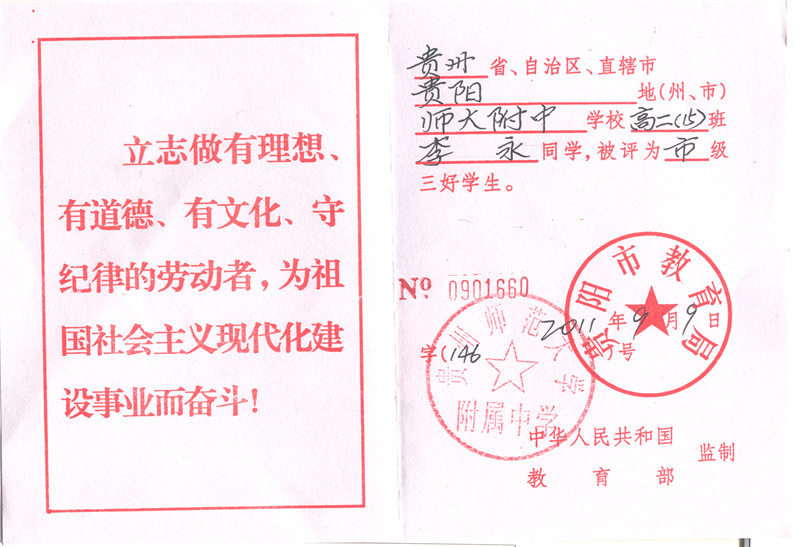 立志做有理想、
有道德、有文化、守
纪律的劳动者，为祖
国社会主义现代化建
设事业而奋斗！
贵州省、自治区、直辖市
贵阳 地(州、市)
师大附中 学校 高二(15)班
李永同学，被评为市级
三好学生。
贵阳市教育局
№ 0901660
2011年9月9日
学(146 号
贵州师范大学
附属中学
中华人民共和国
教育部
监制